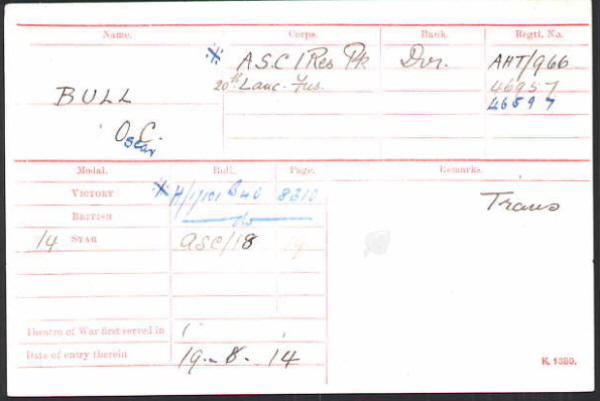 Name. Corps. Rank. Regtl. No.
A.S.C 1 Res Pk Dvr. AHT/966
20th Lanc. Fus. 46957
BULL 46597
O. C.
Oscar
Medal. Roll. Page. Remarks.
VICTORY B40 8310
Trans
BRITISH do
14 STAR ASC/18 19
Theatre of War first served in 1
Date of entry therein 19-8-14
K. 1380.